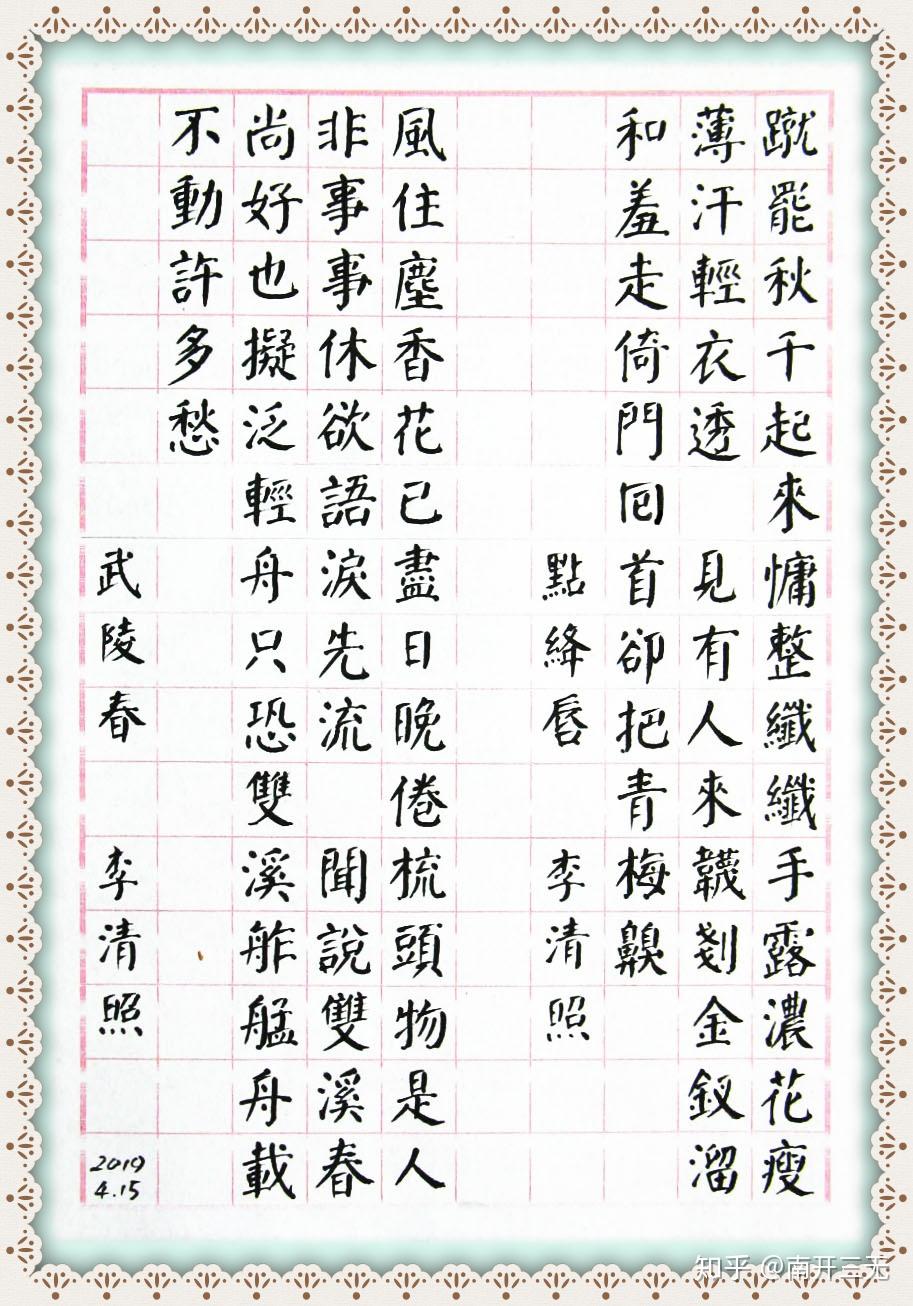 蹴罷秋千起來慵整纖纖手露濃花瘦
薄汗輕衣透 見有人來韈剗金釵溜
和羞走倚門回首卻把青梅齅
點絳唇 李清照
風住塵香花已盡日晚倦梳頭物是人
非事事休欲語淚先流 聞說雙溪春
尚好也擬泛輕舟只恐雙溪舴艋舟載
不動許多愁
武陵春 李清照 2019 4.15
知乎 @南开三无